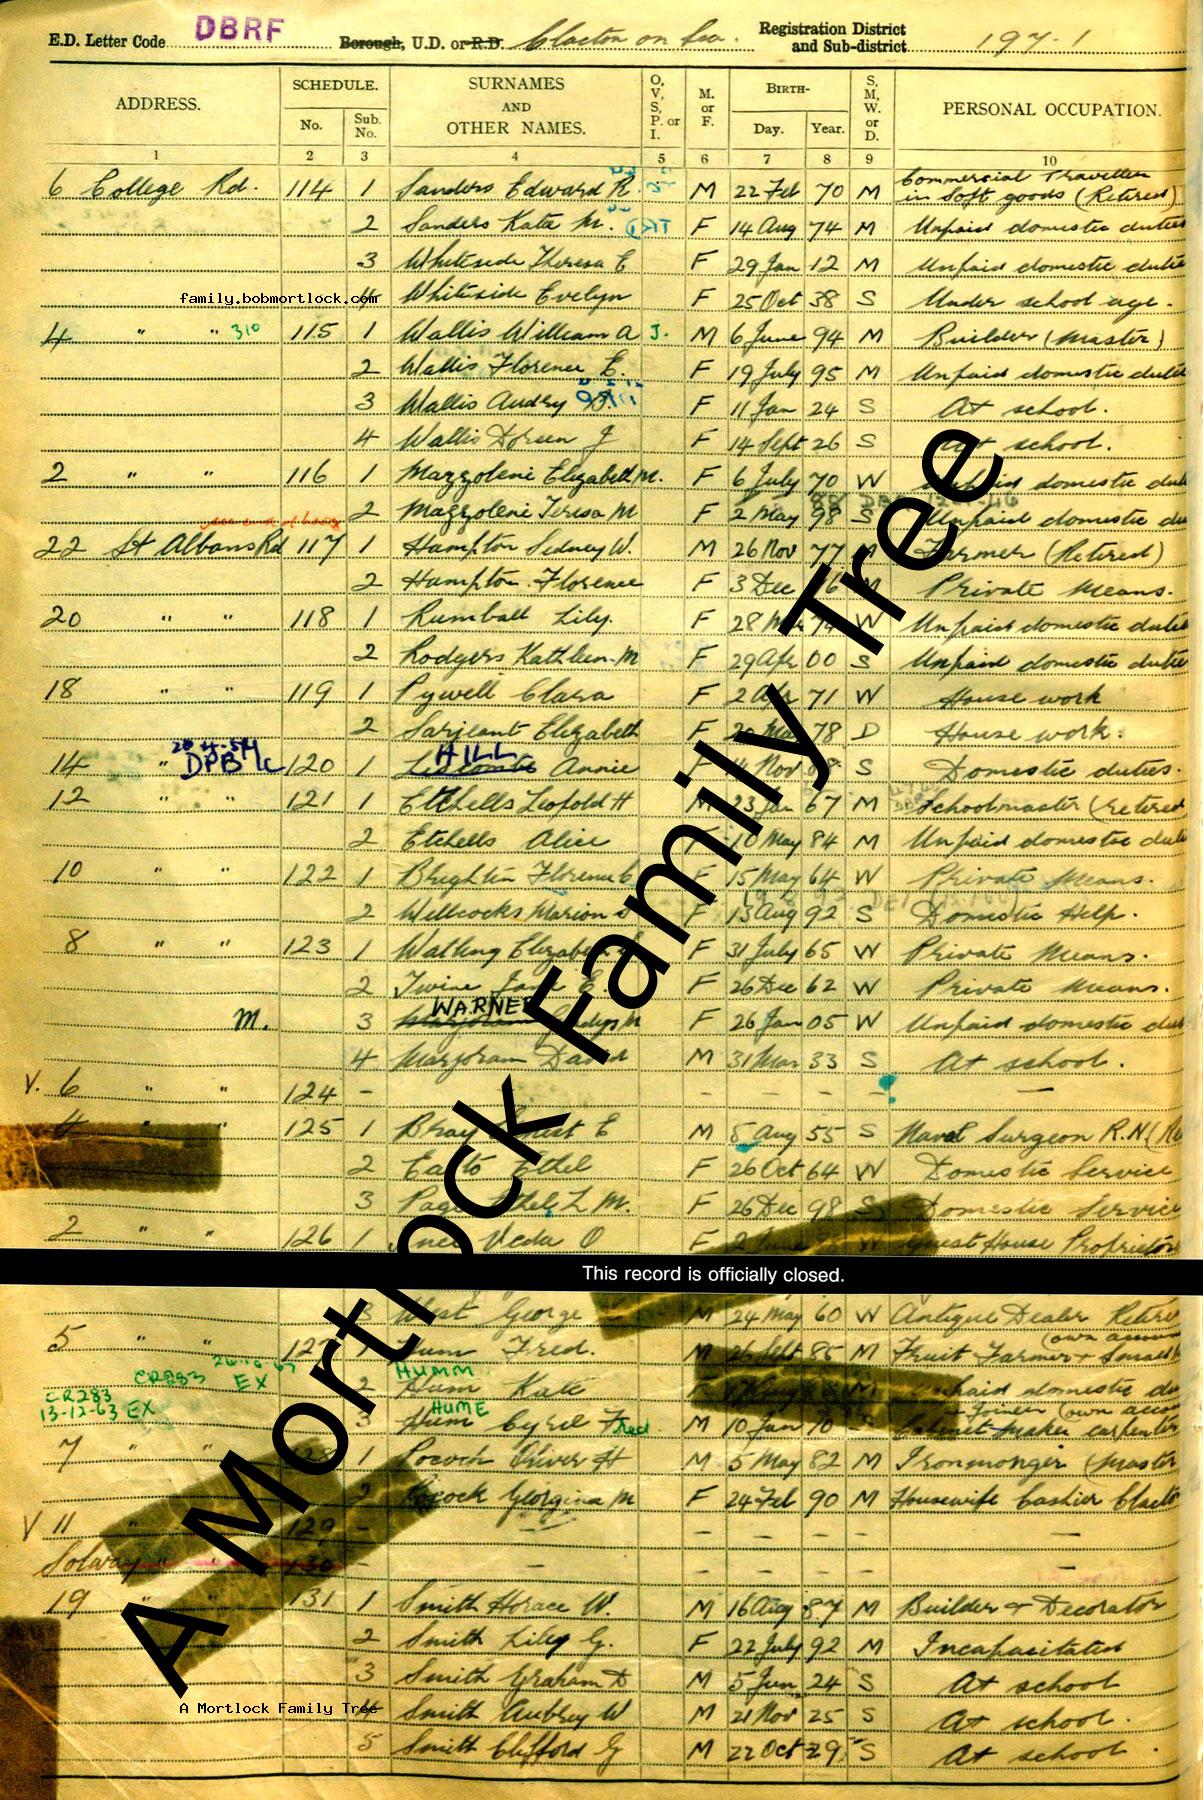 E.D. Letter Code DBRF Borough, U.D. or R.D. Clacton on Sea. Registration District and Sub-district 197-1
ADDRESS. SCHEDULE. SURNAMES AND OTHER NAMES. O, V, S, P. or I. M. or F. BIRTH- S, M, W. or D. PERSONAL OCCUPATION.
No. Sub. No. Day. Year.
1 2 3 4 5 6 7 8 9 10
6 College Rd. 114 1 Sanders Edward R. M 22 Feb 70 M Commercial Traveller in Soft goods (Retired)
2 Sanders Kate M. F 14 Aug 74 M Unpaid domestic duties
3 Whiteside Theresa E F 29 Jan 12 M Unpaid domestic duties
family.bobmortlock.com
4 Whiteside Evelyn F 25 Oct 38 S Under school age.
4 " " 310 115 1 Wallis William A J. M 6 June 94 M Builder (Master)
2 Wallis Florence E. F 19 July 95 M Unpaid domestic duties
3 Wallis Audry F 11 Jan 24 S At school.
4 Wallis Doreen J F 14 Sept 26 S At school.
2 " " 116 1 Mazzoleni Elizabeth M. F 6 July 70 W Unpaid domestic duti
2 Mazzoleni Teresa M F 2 May 98 S Unpaid domestic du
22 St Albans Rd 117 1 Hampton Sidney W. M 26 Nov 77 M Farmer (Retired)
2 Hampton Florence F 3 Dec M Private Means.
20 " " 118 1 Rumball Lily. F 28 W Unpaid domestic duties
2 Rodgers Kathleen M F 29 Apr 00 S Unpaid domestic duties
18 " " 119 1 Pywell Clara F 2 Apr 71 W House work
2 Sarjeant Elizabeth F 78 D House work.
14 " 120 1 HILL Annie F Nov S Domestic duties.
12 " " 121 1 Etchells Leopold H M 23 Jan 67 M Schoolmaster (retired
2 Etchells Alice F 10 May 84 M Unpaid domestic duti
10 " " 122 1 Florence E F 15 May 64 W Private Means.
2 Willcocks Marion F 13 Aug 92 S Domestic Help.
8 " " 123 1 Watling Elizabeth F 31 July 65 W Private Means.
2 Twine Jane E. F 26 Dec 62 W Private Means.
M. 3 Marjoram WARNER Gladys M F 26 Jan 05 W Unpaid domestic dut
4 Marjoram David M 31 Mar 33 S At school.
V. 6 " " 124 - - - - -
4 125 1 Bray Ernest E M 8 Aug 55 S Naval Surgeon R.N.
2 Ethel F 26 Oct 64 W Domestic Service
3 Page Ethel L M. F 26 Dec 98 S Domestic Service
2 " " 126 1 Veda O F 2 June W Guest House Proprietor
This record is officially closed.
3 West George M 24 May 60 W Antique Dealer Retire
5 " " 127 1 Hum Fred. M 26 Sept 85 M Fruit Farmer + Small (own accoun
HUMM
CR283 EX
2 Hum Kate F M Unpaid domestic du
CR283 13-12-63 EX
HUME
3 Hum Cyril Fred M 10 Jan S Cabinet Maker carpenter Joiner (own accou
7 " " 128 1 Pocock Oliver H M 5 May 82 M Ironmonger (Master
2 Pocock Georgina M F 24 Feb 90 M Housewife Cashier Clact
V 11 " 129 - - - - - -
Solway " " 130 - - - - - -
19 " " 131 1 Smith Horace W. M 16 Aug 87 M Builder & Decorator
2 Smith Liley G. F 22 July 92 M Incapacitated
3 Smith Graham D M 5 Jun 24 S At school
A Mortlock Family Tree
4 Smith Aubrey W M 21 Nov 25 S At school.
5 Smith Clifford G M 22 Oct 29 S At school.
A Mortlock Family Tree